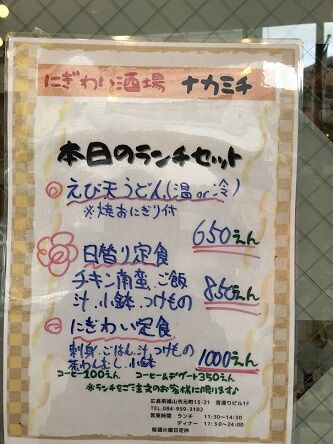 にぎわい酒場 ナカミチ
本日のランチセット
えび天うどん(温or冷)
※焼おにぎり付
650えん
日替り定食
チキン南蛮、ご飯
汁、小鉢、つけもの
850えん
にぎわい定食
刺身、ごはん、汁、つけもの
茶わんむし、小鉢
1000えん
コーヒー100えん コーヒー&デザート350えん
※ランチをご注文のお客様に限ります♪
広島県福山市元町13-21 宮通りビル1F
TEL.084-959-3102
営業時間 ランチ 11:30~14:30
ディナー 17:30~24:00
毎週火曜日定休